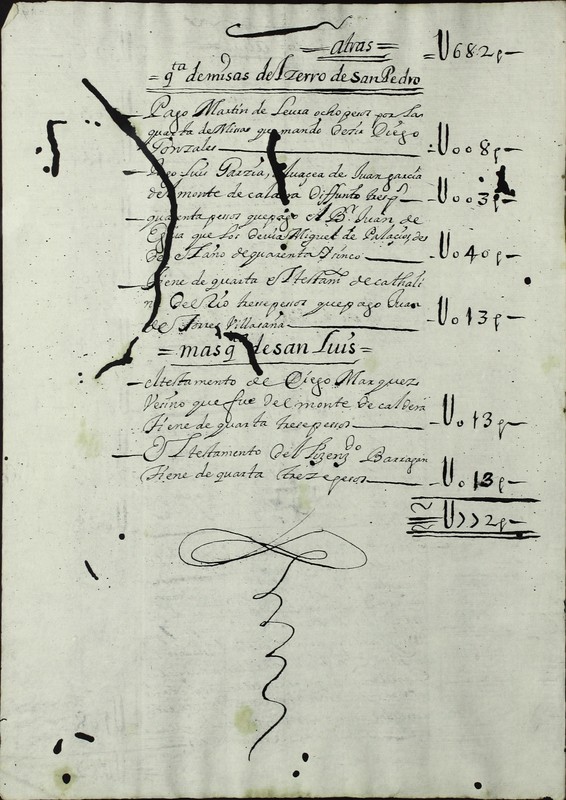 = atras = U682p
= qta de misas del Zerro de San Pedro
Pago Martin de Leura ocho pesos por las
quarta de Misas que mando dezir Diego
Gonzales U008p
Pago Luis Garzia, Aluacea de Juan garcia
del monte de caldera Diffunto tres ps U003p
quarenta pesos que pago el Br Juan de
que los deuia Miguel de Palacios des
de el Año de quarenta y sinco U040p
tiene de quarta el testamto de cathali
na del Rio trese pesos que pago Juan
de Torres Villasaña U013p
= mas qta de San Luis =
el testamento de Diego Marquez
Vesino que fue del monte de caldera
tiene de quarta trese pesos U013p
El testamento del Lizendo Barragan
tiene de quarta treze pesos U013p
U772p